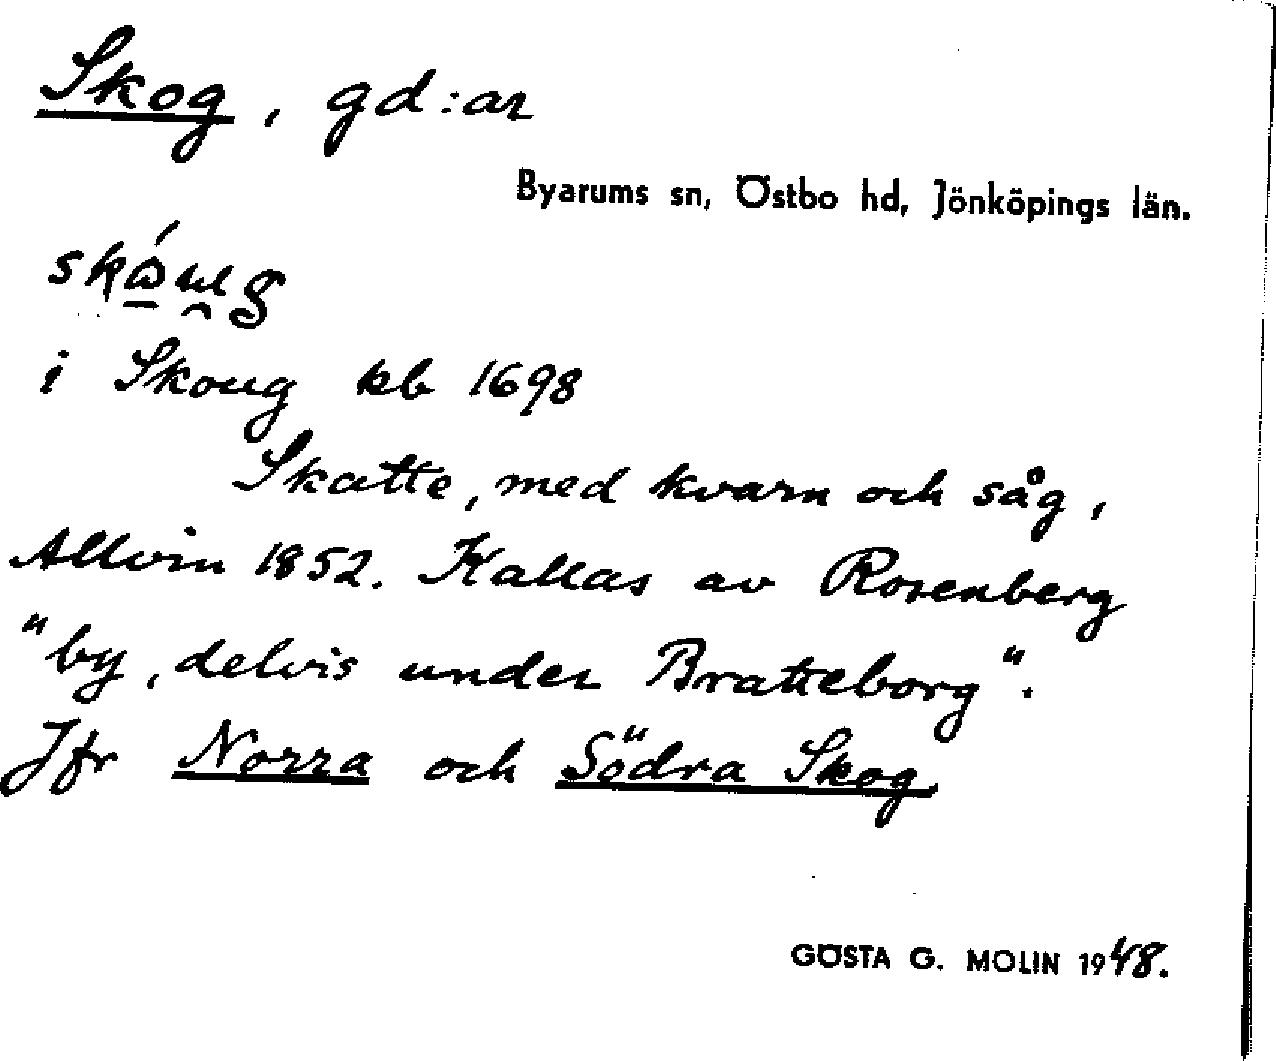 Skog, gd:ar
Byarums sn, Östbo hd, Jönköpings län.
i Skoug kb 1698
Skatte, med kvarn och såg,
Allvin 1852. Kallas av Rosenberg
"by, delvis under Bratteborg".
Jfr Norra och Södra Skog.
GÖSTA G. MOLIN 1948.